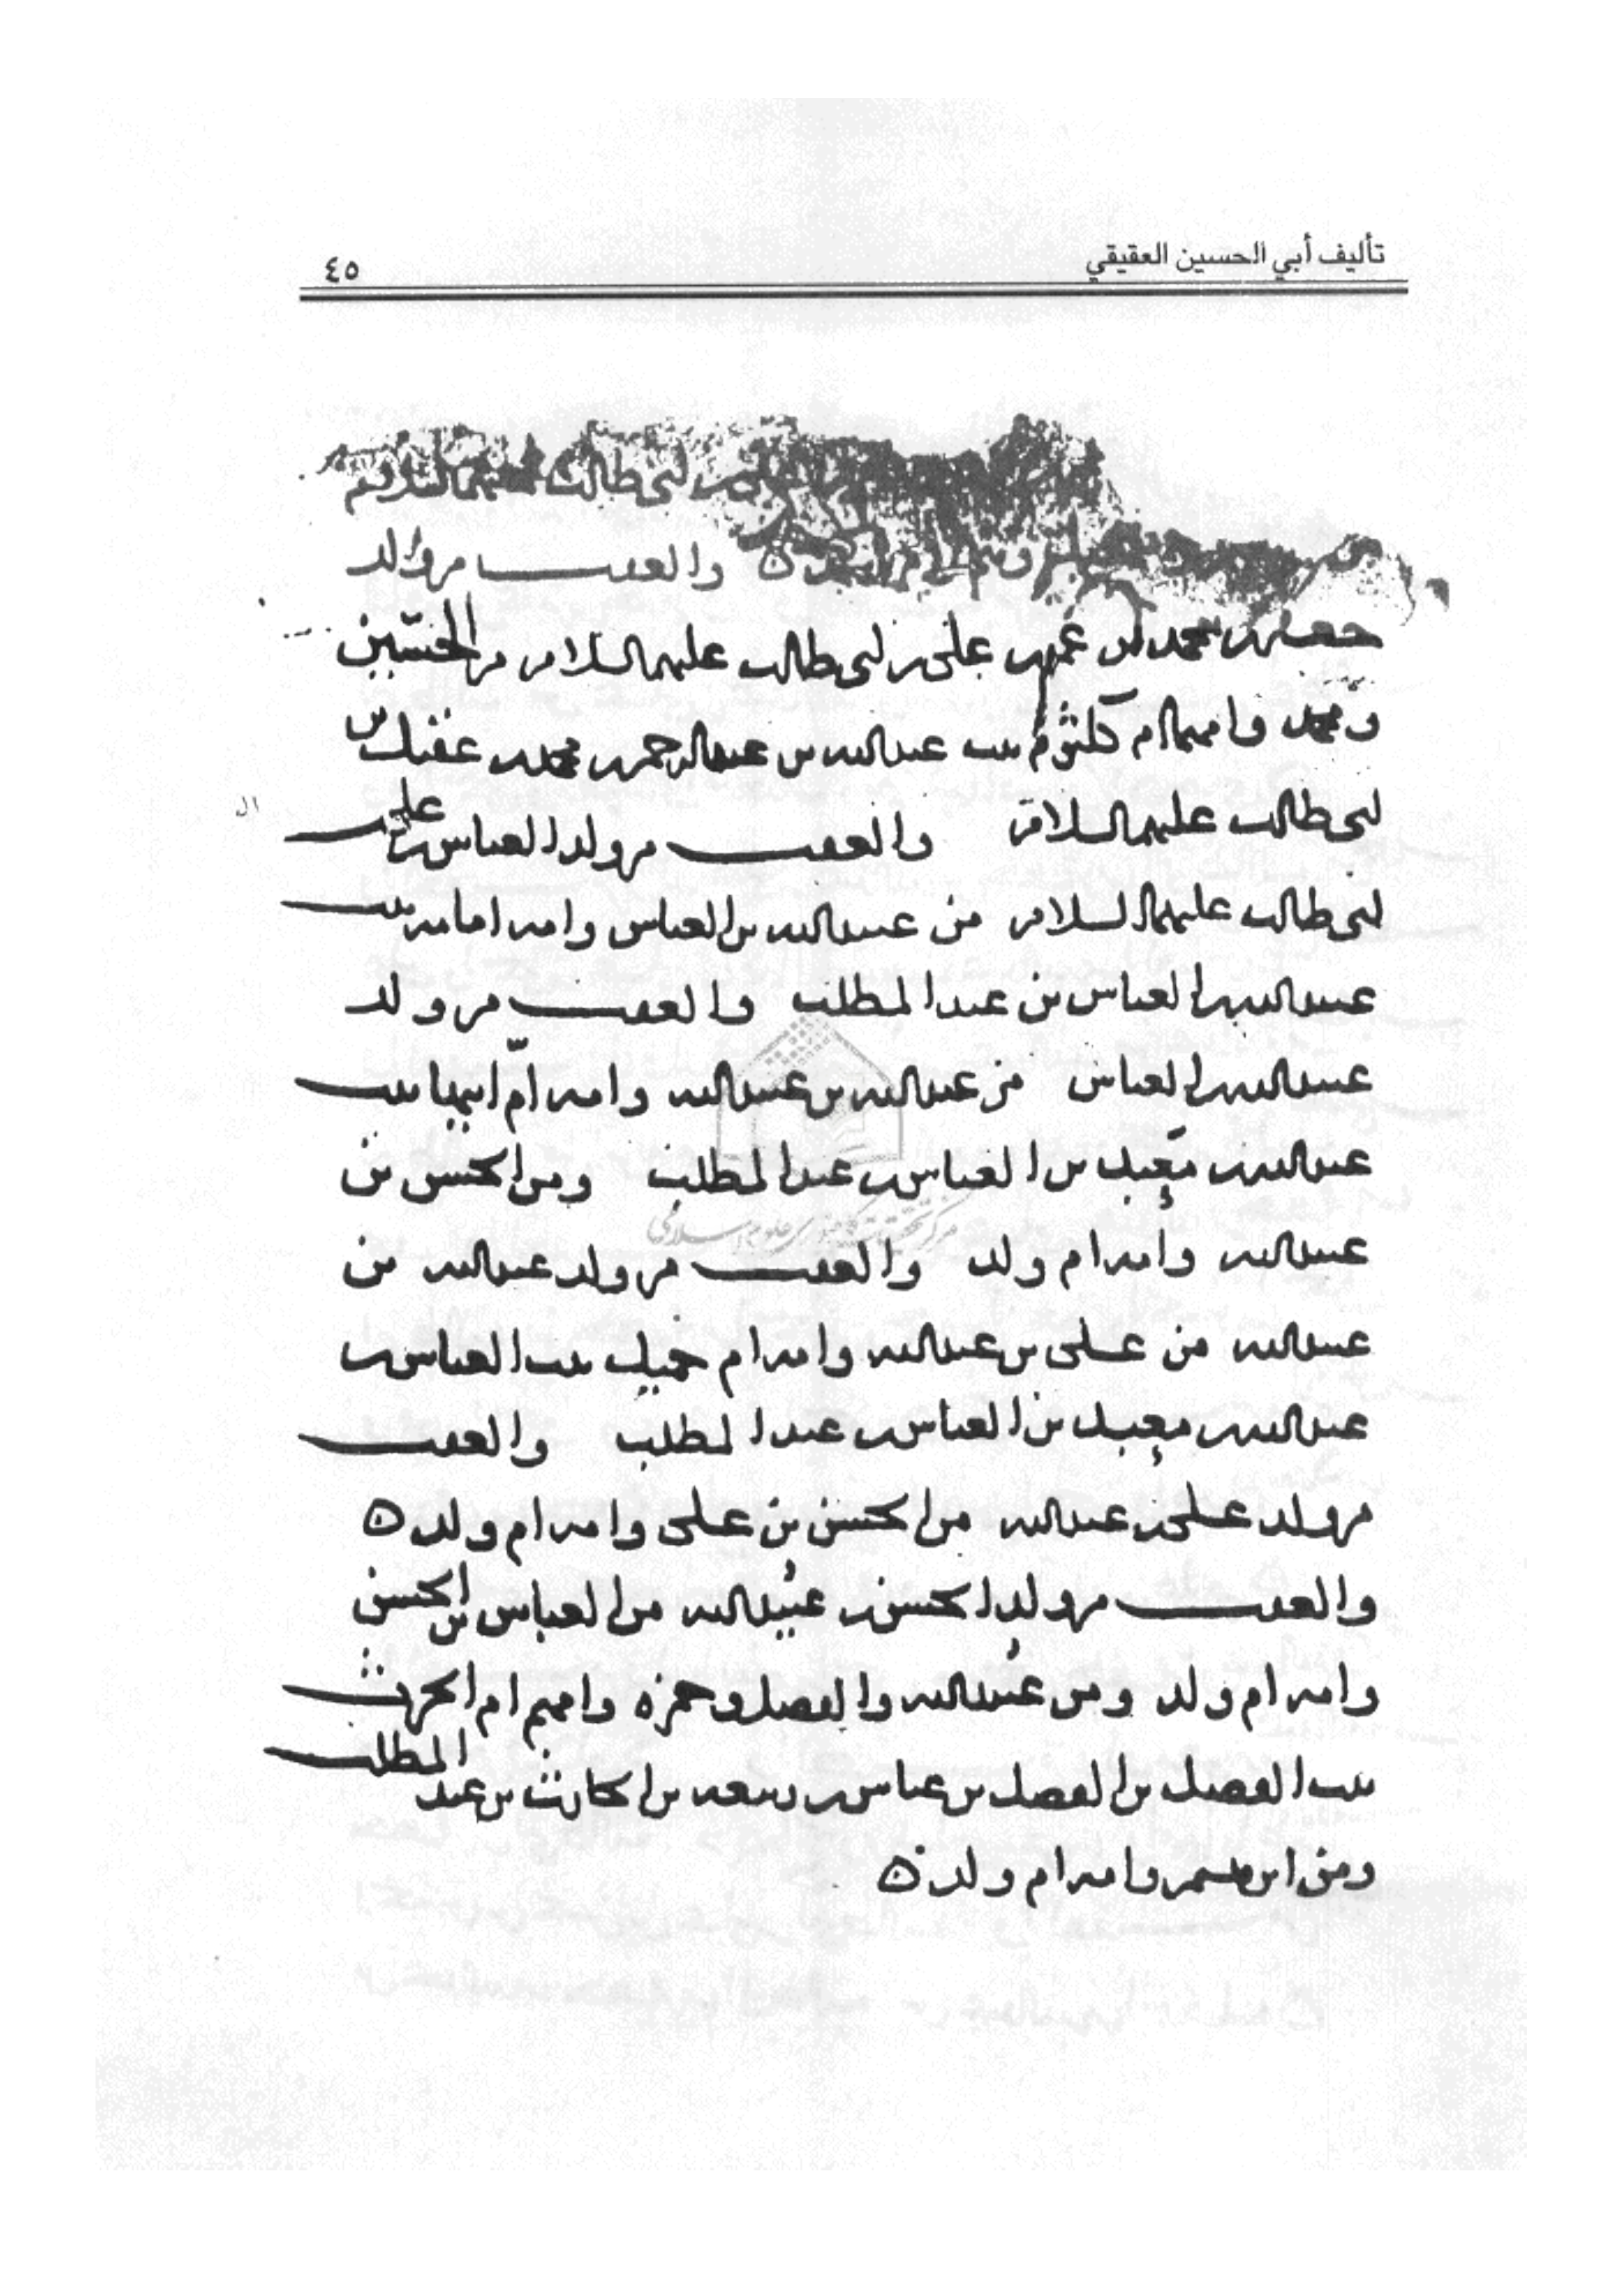 تأليف أبي الحسين العقيقي
٤٥
لبى طالب عليهما السلام
والعقب من ولد
جعفر بن محمد بن عمر بن على بن ابى طالب عليهما السلام من الحسين
ومحمد وامهما ام كلثوم بنت عبدالله بن عبدالرحمن بن محمد بن عقيل بن
ابى طالب عليهما السلام والعقب من ولد العباس بن على بن
ابى طالب عليهما السلام من عبيدالله بن العباس وامه امامه بنت
عبيدالله بن العباس بن عبدالمطلب والعقب من ولد
عبيدالله بن العباس من عبدالله بن عبيدالله وامه امّ ابيها بنت
عبدالله بن معبد بن العباس بن عبدالمطلب ومن الحسن بن
عبيدالله وامه ام ولد والعقب من ولد عبدالله بن
عبيدالله من على بن عبدالله وامه ام جميل بنت العباس بن
عبدالله بن معبد بن العباس بن عبدالمطلب والعقب
من ولد على بن عبدالله من الحسن بن على وامه ام ولد ه
والعقب من ولد الحسن بن عبيدالله من العباس بن الحسن
وامه ام ولد ومن عبيدالله والفضل وحمزه وامهم ام الحرث
بنت الفضل بن الفضل بن عباس بن ربيعه بن الحارث بن عبد المطلب
ومن ابرهيم وامه ام ولد ه
مركز تحقيقات كامپيوترى علوم اسلامى